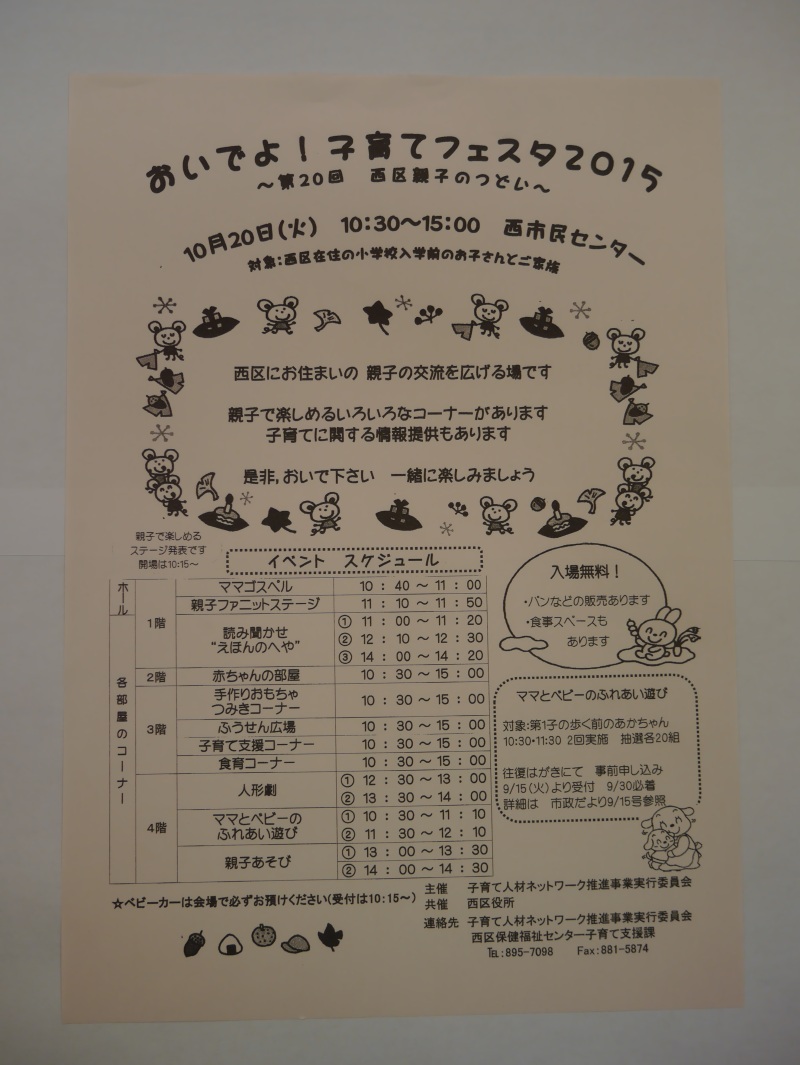 おいでよ！子育てフェスタ2015
～第20回　西区親子のつどい～
10月20日(火)　10:30～15:00　西市民センター
対象:西区在住の小学校入学前のお子さんとご家族
西区にお住まいの 親子の交流を広げる場です
親子で楽しめるいろいろなコーナーがあります
子育てに関する情報提供もあります
是非,おいで下さい　一緒に楽しみましょう
親子で楽しめる
ステージ発表です
開場は10:15～
イベント　スケジュール
ホール
1階
ママゴスペル　10：40～11：00
親子ファニットステージ　11：10～11：50
各部屋のコーナー
読み聞かせ
“えほんのへや”
① 11：00～11：20
② 12：10～12：30
③ 14：00～14：20
2階　赤ちゃんの部屋　10：30～15：00
3階
手作りおもちゃ
つみきコーナー　10：30～15：00
ふうせん広場　10：30～15：00
子育て支援コーナー　10：30～15：00
食育コーナー　10：30～15：00
4階
人形劇
① 12：30～13：00
② 13：30～14：00
ママとベビーの
ふれあい遊び
① 10：30～11：10
② 11：30～12：10
親子あそび
① 13：00～13：30
② 14：00～14：30
入場無料！
・パンなどの販売あります
・食事スペースも
あります
ママとベビーのふれあい遊び
対象:第1子の歩く前のあかちゃん
10:30・11:30 2回実施　抽選各20組
往復はがきにて　事前申し込み
9/15(火)より受付　9/30必着
詳細は　市政だより9/15号参照
☆ベビーカーは会場で必ずお預けください(受付は10:15～)
主催　子育て人材ネットワーク推進事業実行委員会
共催　西区役所
連絡先　子育て人材ネットワーク推進事業実行委員会
西区保健福祉センター子育て支援課
TEL:895-7098　Fax:881-5874